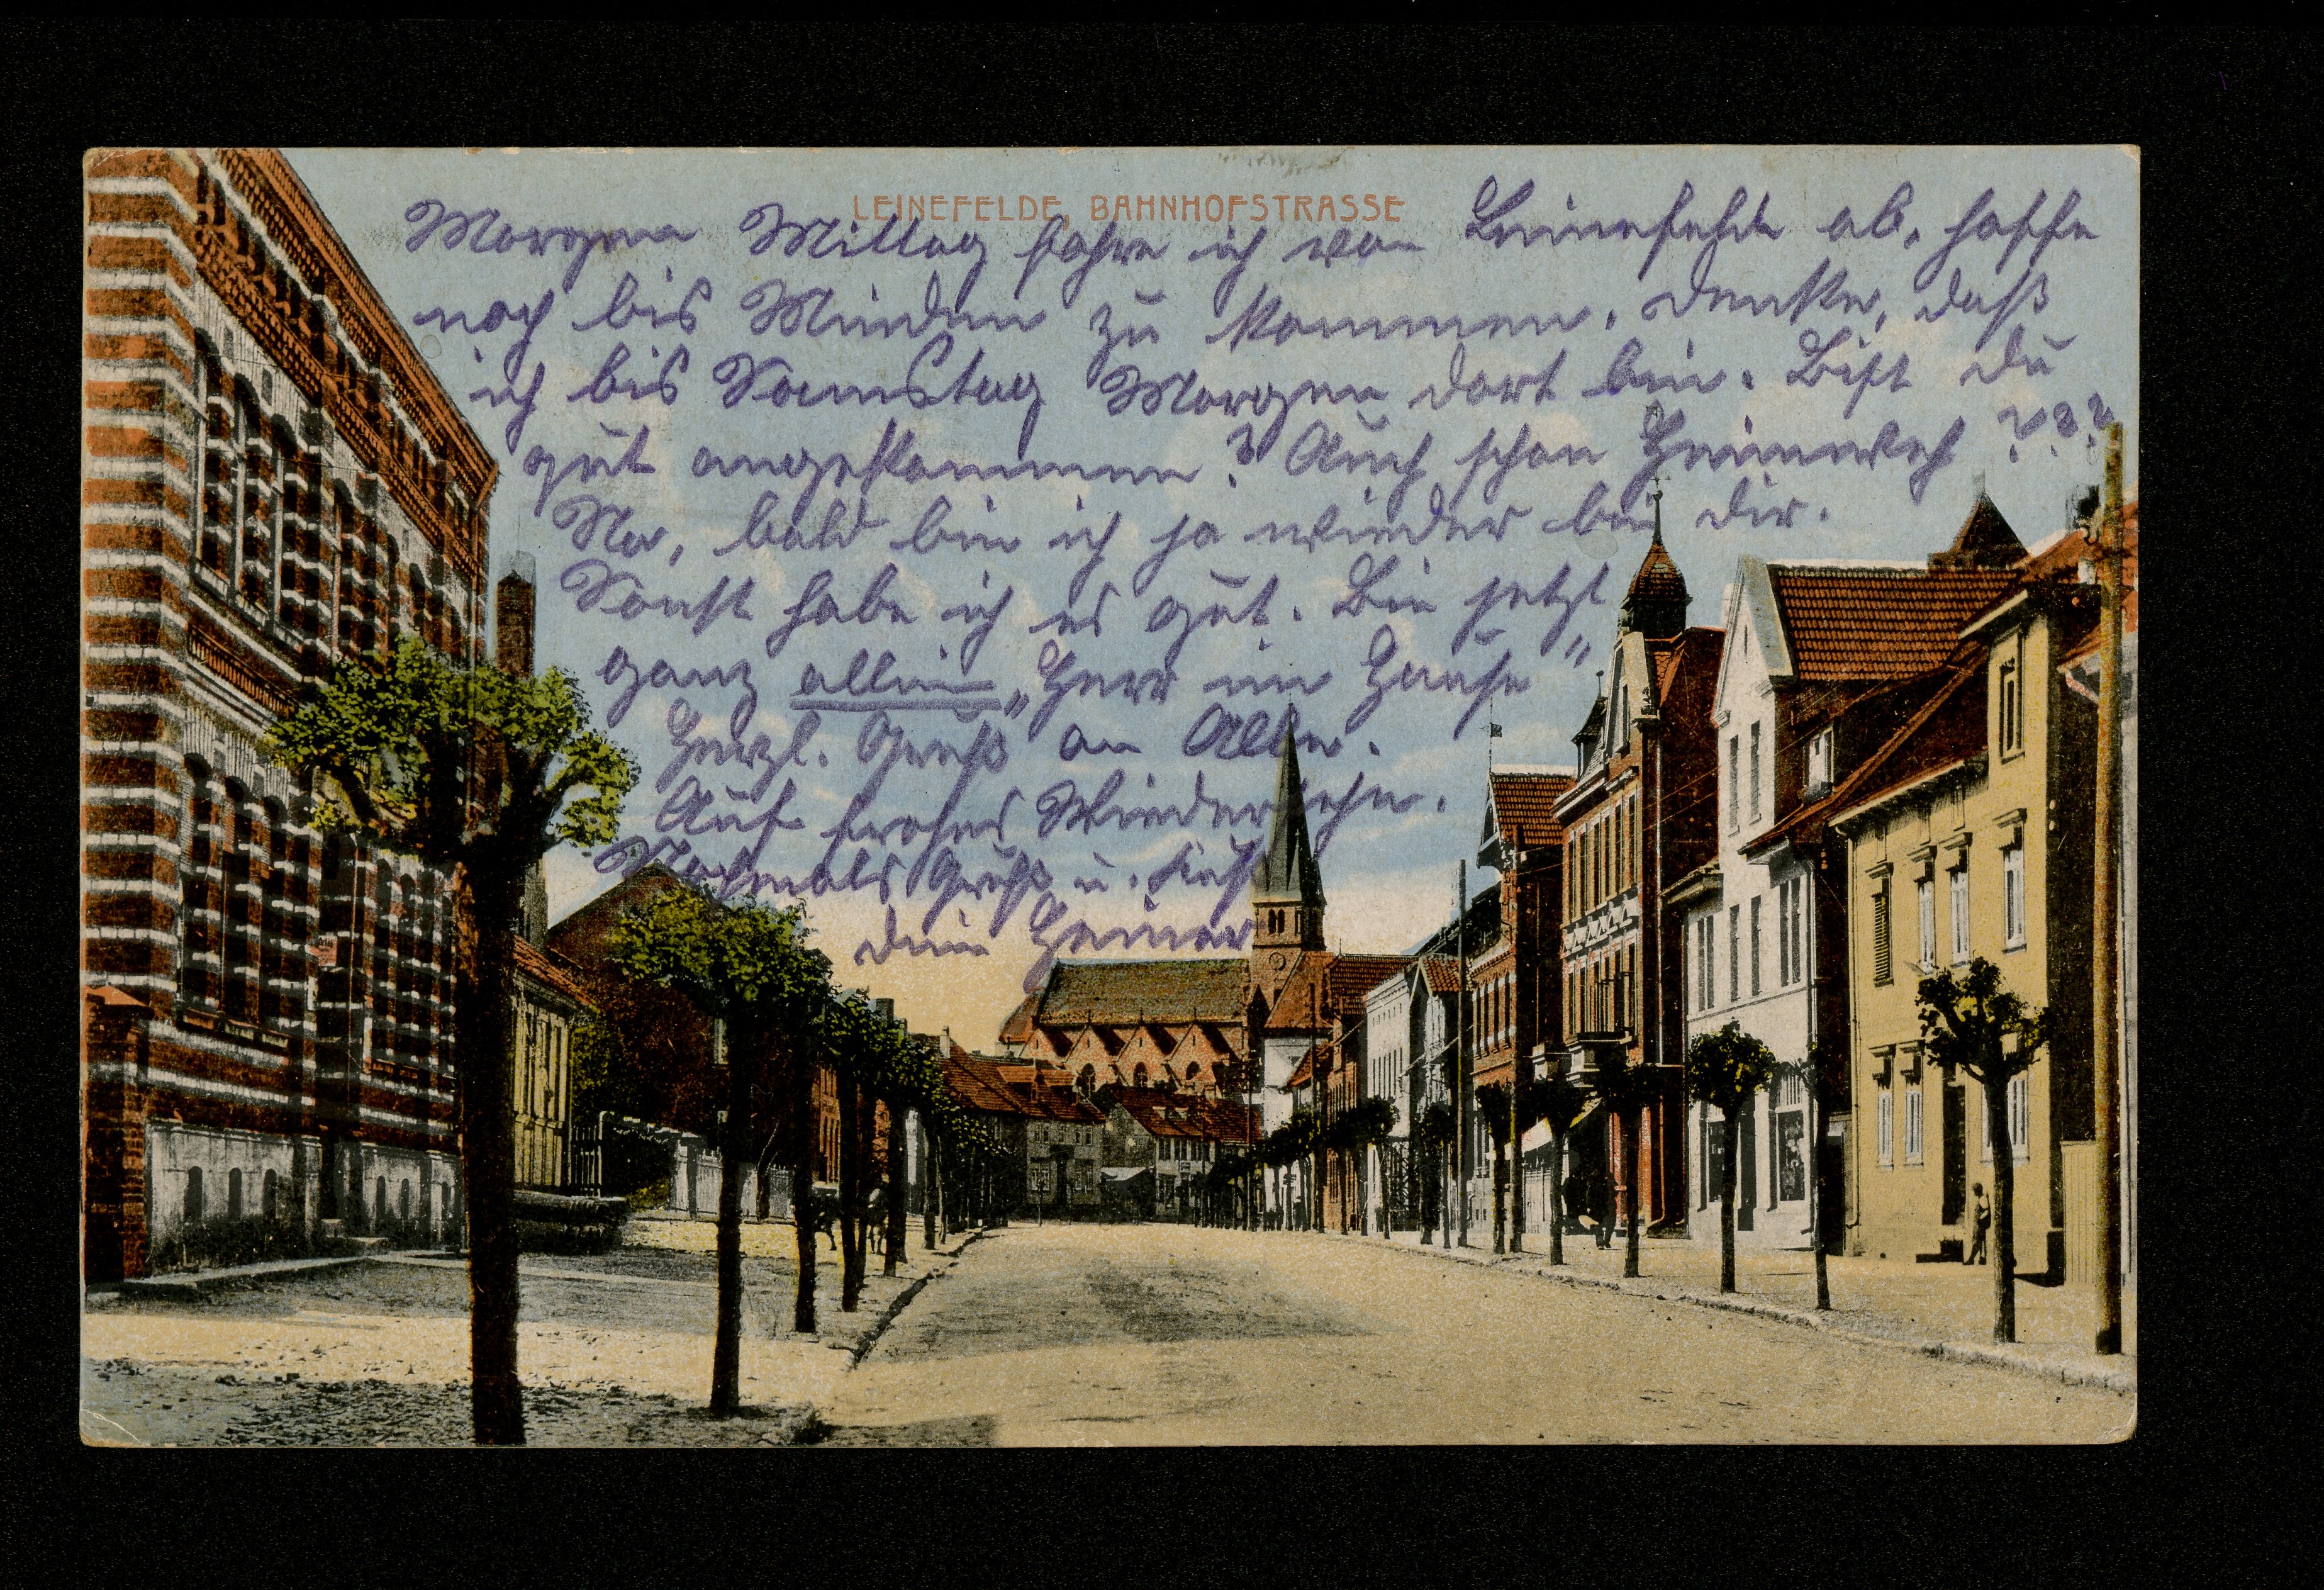 LEINEFELDE, BAHNHOFSTRASSE
Morgen Mittag fahre ich von Leinefelde ab, hoffe
noch bis Minden zu kommen. Denke, daß
ich bis Samstag Morgen dort bin. Bist du
gut angekommen? Auch schon Heimweh ???
Na, bald bin ich ja wieder bei dir.
Sonst habe ich es gut. Bin jetzt
ganz allein „Herr im Hause"
Herzl. Gruß an Alle.
Auf frohes Wiedersehn.
Nochmals Gruß u. Kuß
dein Heiner